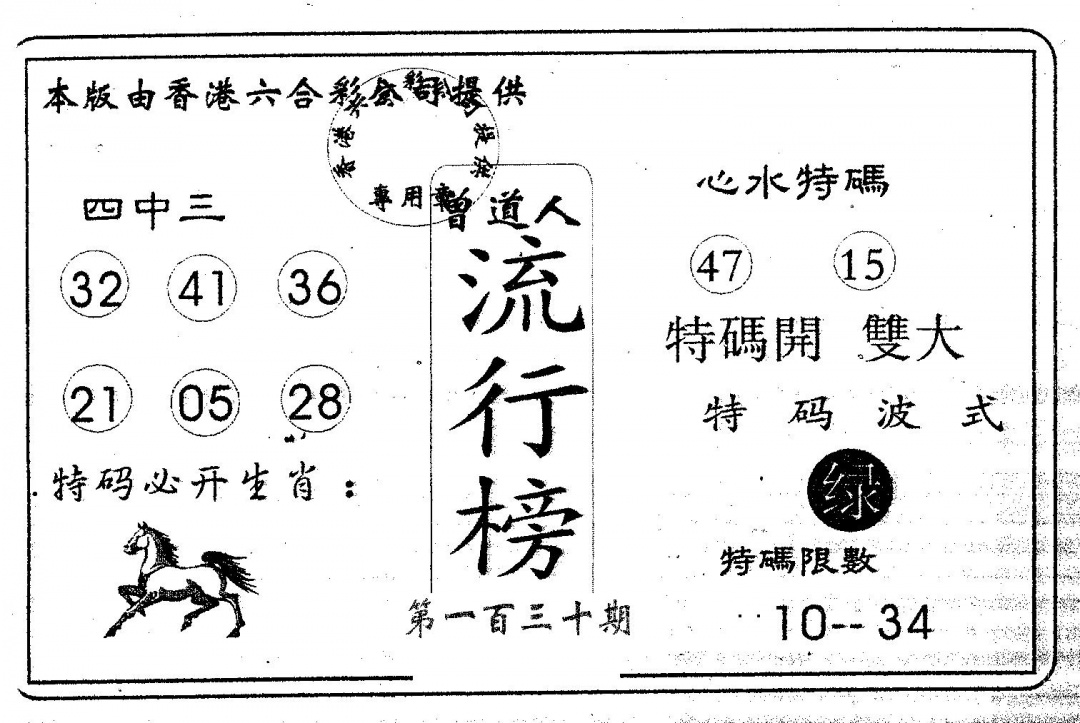 本版由香港六合彩公司提供
專用章
四中三
32 41 36
21 05 28
特码必开生肖：
曾道人
流行榜
第一百三十期
心水特碼
47 15
特碼開 雙大
特码波式
绿
特碼限數
10--34